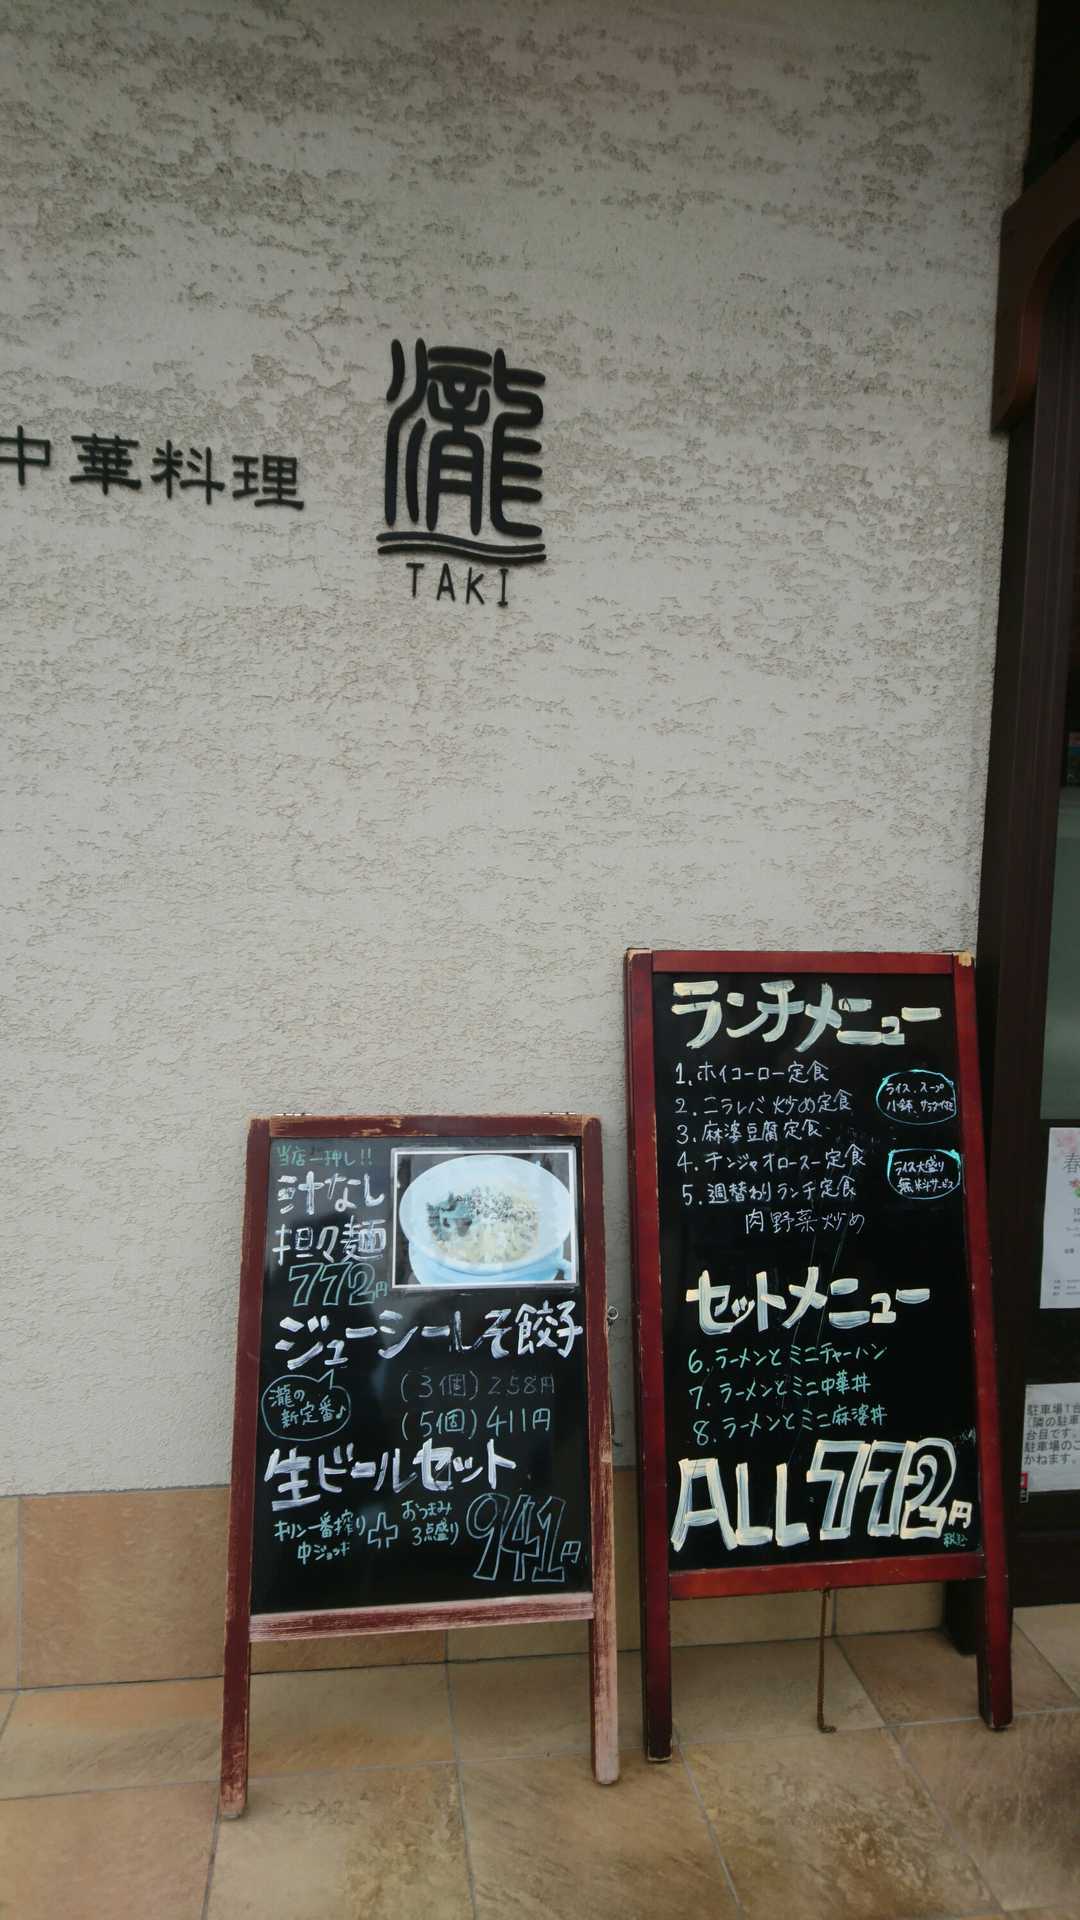 中華料理
瀧
TAKI
当店一押し!!
汁なし
担々麺
772円
ジューシーしそ餃子
瀧の
新定番♪
(3個) 258円
(5個) 411円
生ビールセット
キリン一番搾り
中ジョッキ
+
おつまみ
3点盛り
941円
ランチメニュー
1. ホイコーロー定食
2. ニラレバ炒め定食
3. 麻婆豆腐定食
4. チンジャオロース―定食
5. 週替わりランチ定食
肉野菜炒め
ライス、スープ
小鉢、サラダ付き
ライス大盛り
無料サービス
セットメニュー
6. ラーメンとミニチャーハン
7. ラーメンとミニ中華丼
8. ラーメンとミニ麻婆丼
ALL 772円
税込
春
駐車場1台
隣の駐車
台目です。
駐車場のご
かねます。